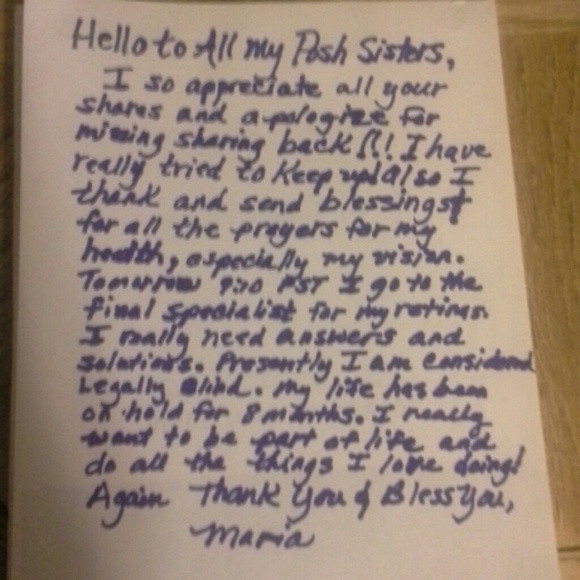 Hello to All my Posh Sisters,
I so appreciate all your
shares and apologize for
missing sharing back!!! I have
really tried to keep up! Also I
thank and send blessings
for all the prayers for my
health, especially my vision.
Tomorrow PST I go to the
final specialist for my retinas.
I really need answers and
solutions. Presently I am considered
Legally Blind. My life has been
on hold for 8 months. I really
want to be part of life and
do all the things I love doing!
Again Thank You & Bless You,
Maria